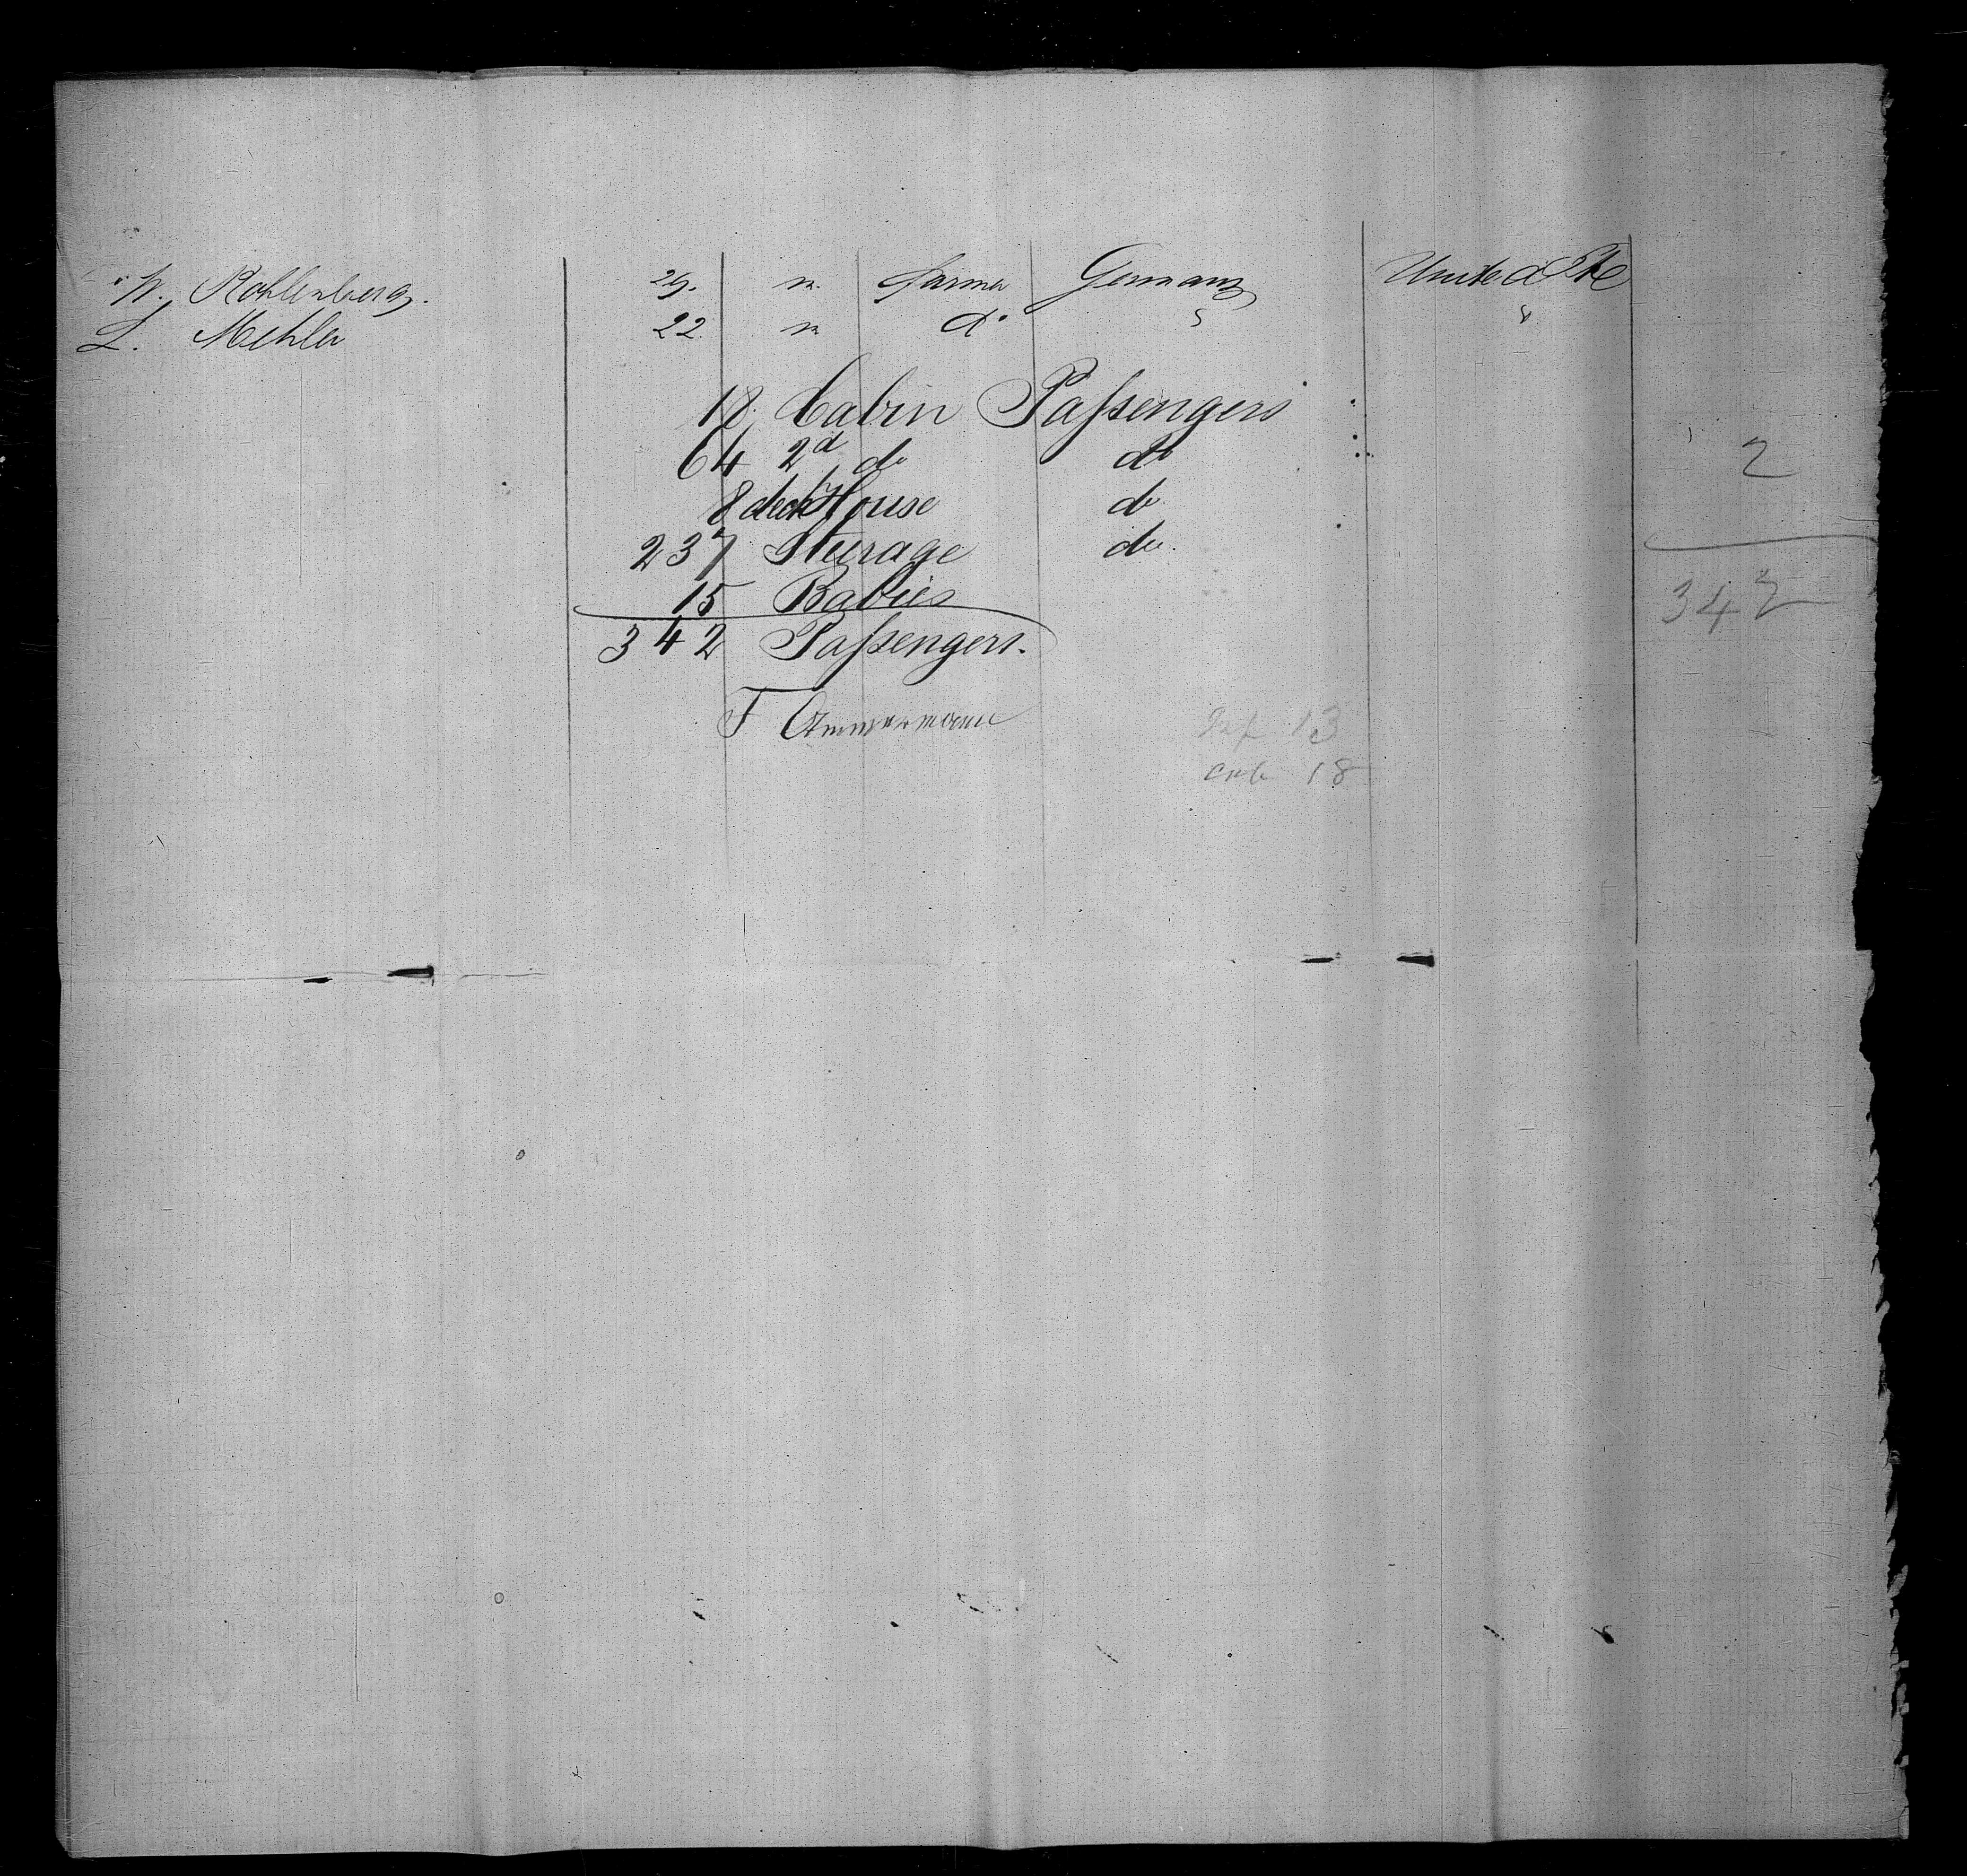 W. Rohlenberg. 29. m. farmer Germany United Ste
L. Mehler 22. m do " "
18. Cabin Passengers
64 2d do do
2
8 deck House do
237 Steerage do.
15 Babies
342
342 Passengers.
F Ammermann
Inf 13
18